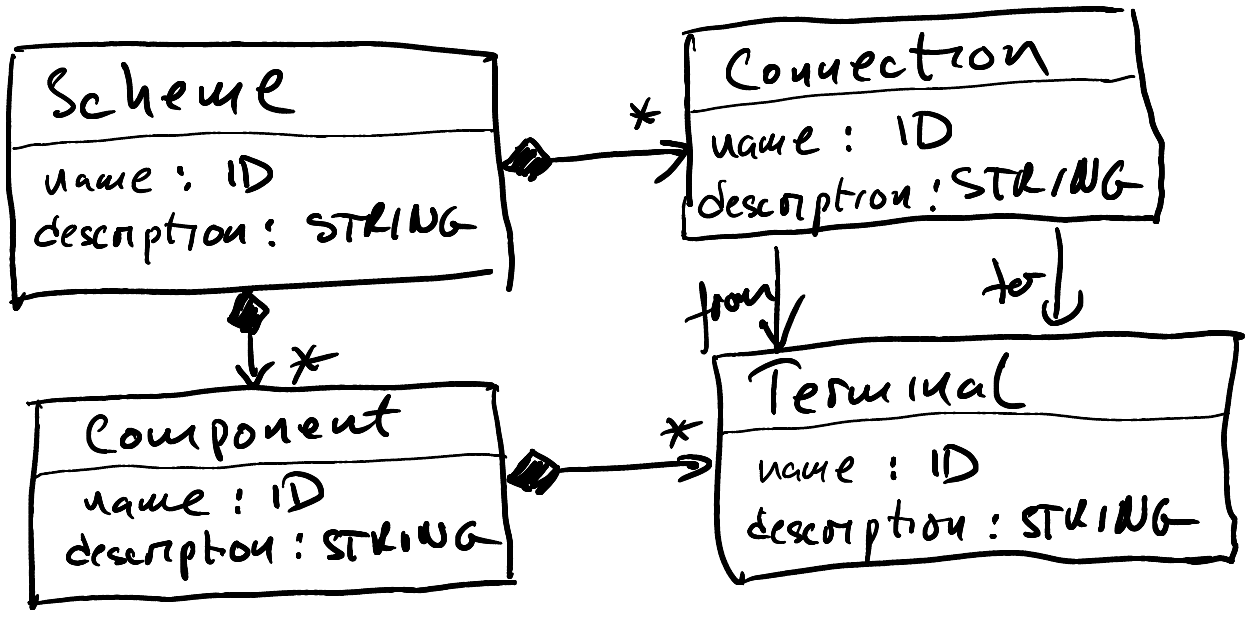 Scheme
name : ID
description : STRING
*
Connection
name : ID
description : STRING
from
to
*
Component
name : ID
description : STRING
*
Terminal
name : ID
description : STRING